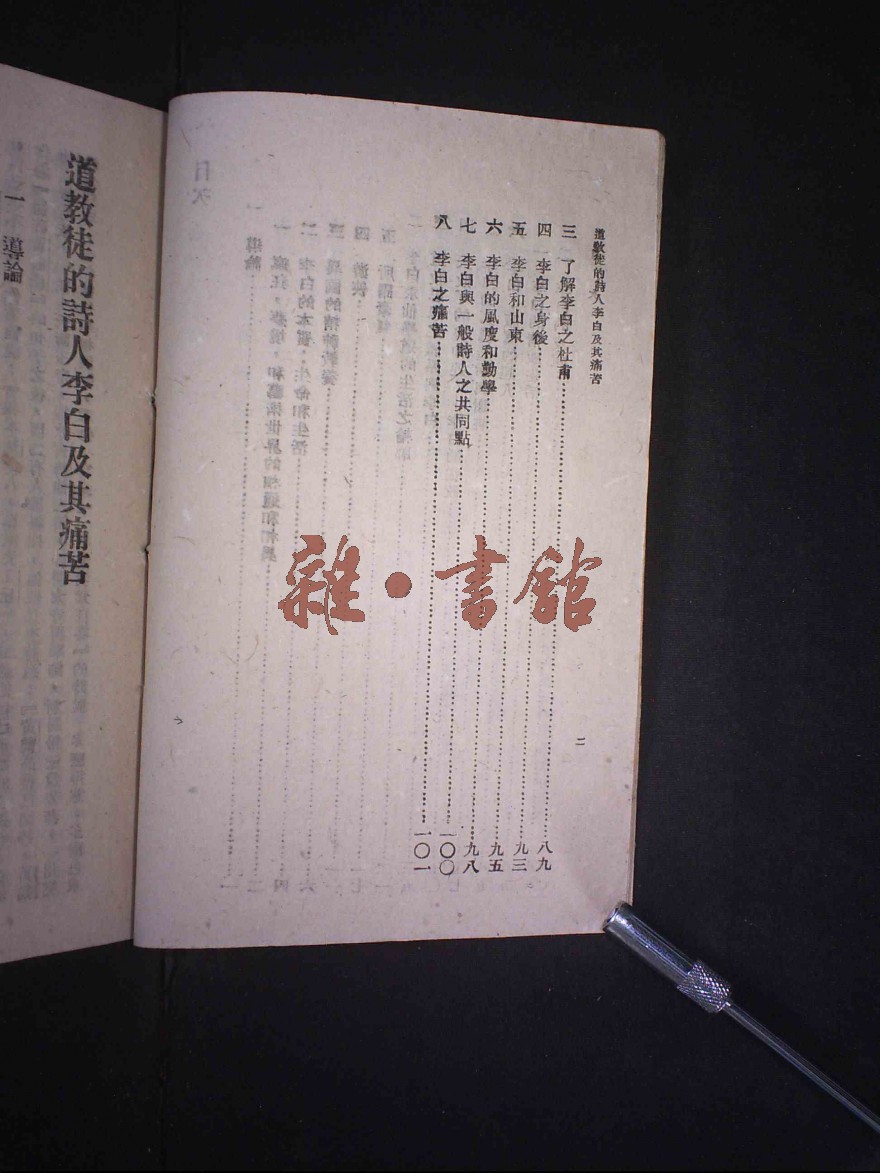 道教徒的詩人李白及其痛苦
二
三 了解李白之杜甫……八九
四 李白之身後……九三
五 李白和山東……九五
六 李白的風度和勤學……九八
七 李白與一般詩人之共同點……一〇〇
八 李白之痛苦……一〇一
道教徒的詩人李白及其痛苦
一 導論
雜·書館